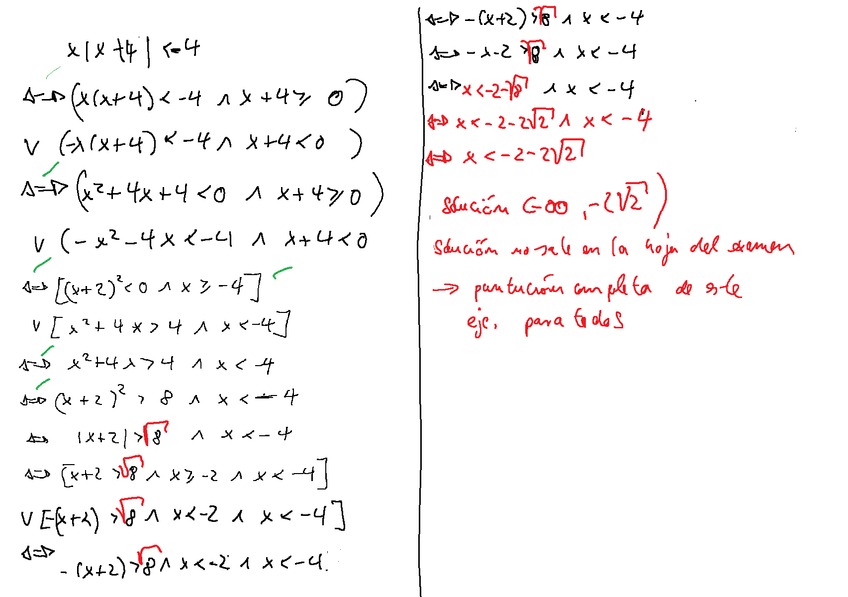 x|x+4| < -4
⇔ (x(x+4) < -4 ∧ x+4 ≥ 0)
∨ (-x(x+4) < -4 ∧ x+4 < 0)
⇔ (x²+4x+4 < 0 ∧ x+4 ≥ 0)
∨ (-x²-4x < -4 ∧ x+4 < 0
⇔ [(x+2)² < 0 ∧ x ≥ -4]
∨ [x²+4x > 4 ∧ x < -4]
⇔ x²+4x > 4 ∧ x < -4
⇔ (x+2)² > 8 ∧ x < -4
⇔ |x+2| > √8 ∧ x < -4
⇔ [x+2 > √8 ∧ x ≥ -2 ∧ x < -4]
∨ [-(x+2) > √8 ∧ x < -2 ∧ x < -4]
⇔ -(x+2) > √8 ∧ x < -2 ∧ x < -4.
⇔ -(x+2) > √8 ∧ x < -4
⇔ -x-2 > √8 ∧ x < -4
⇔ x < -2-√8 ∧ x < -4
⇔ x < -2-2√2 ∧ x < -4
⇔ x < -2-2√2
Solución (-∞, -2√2)
Solución no sale en la hoja del examen
→ puntución completa de este
eje. para todos